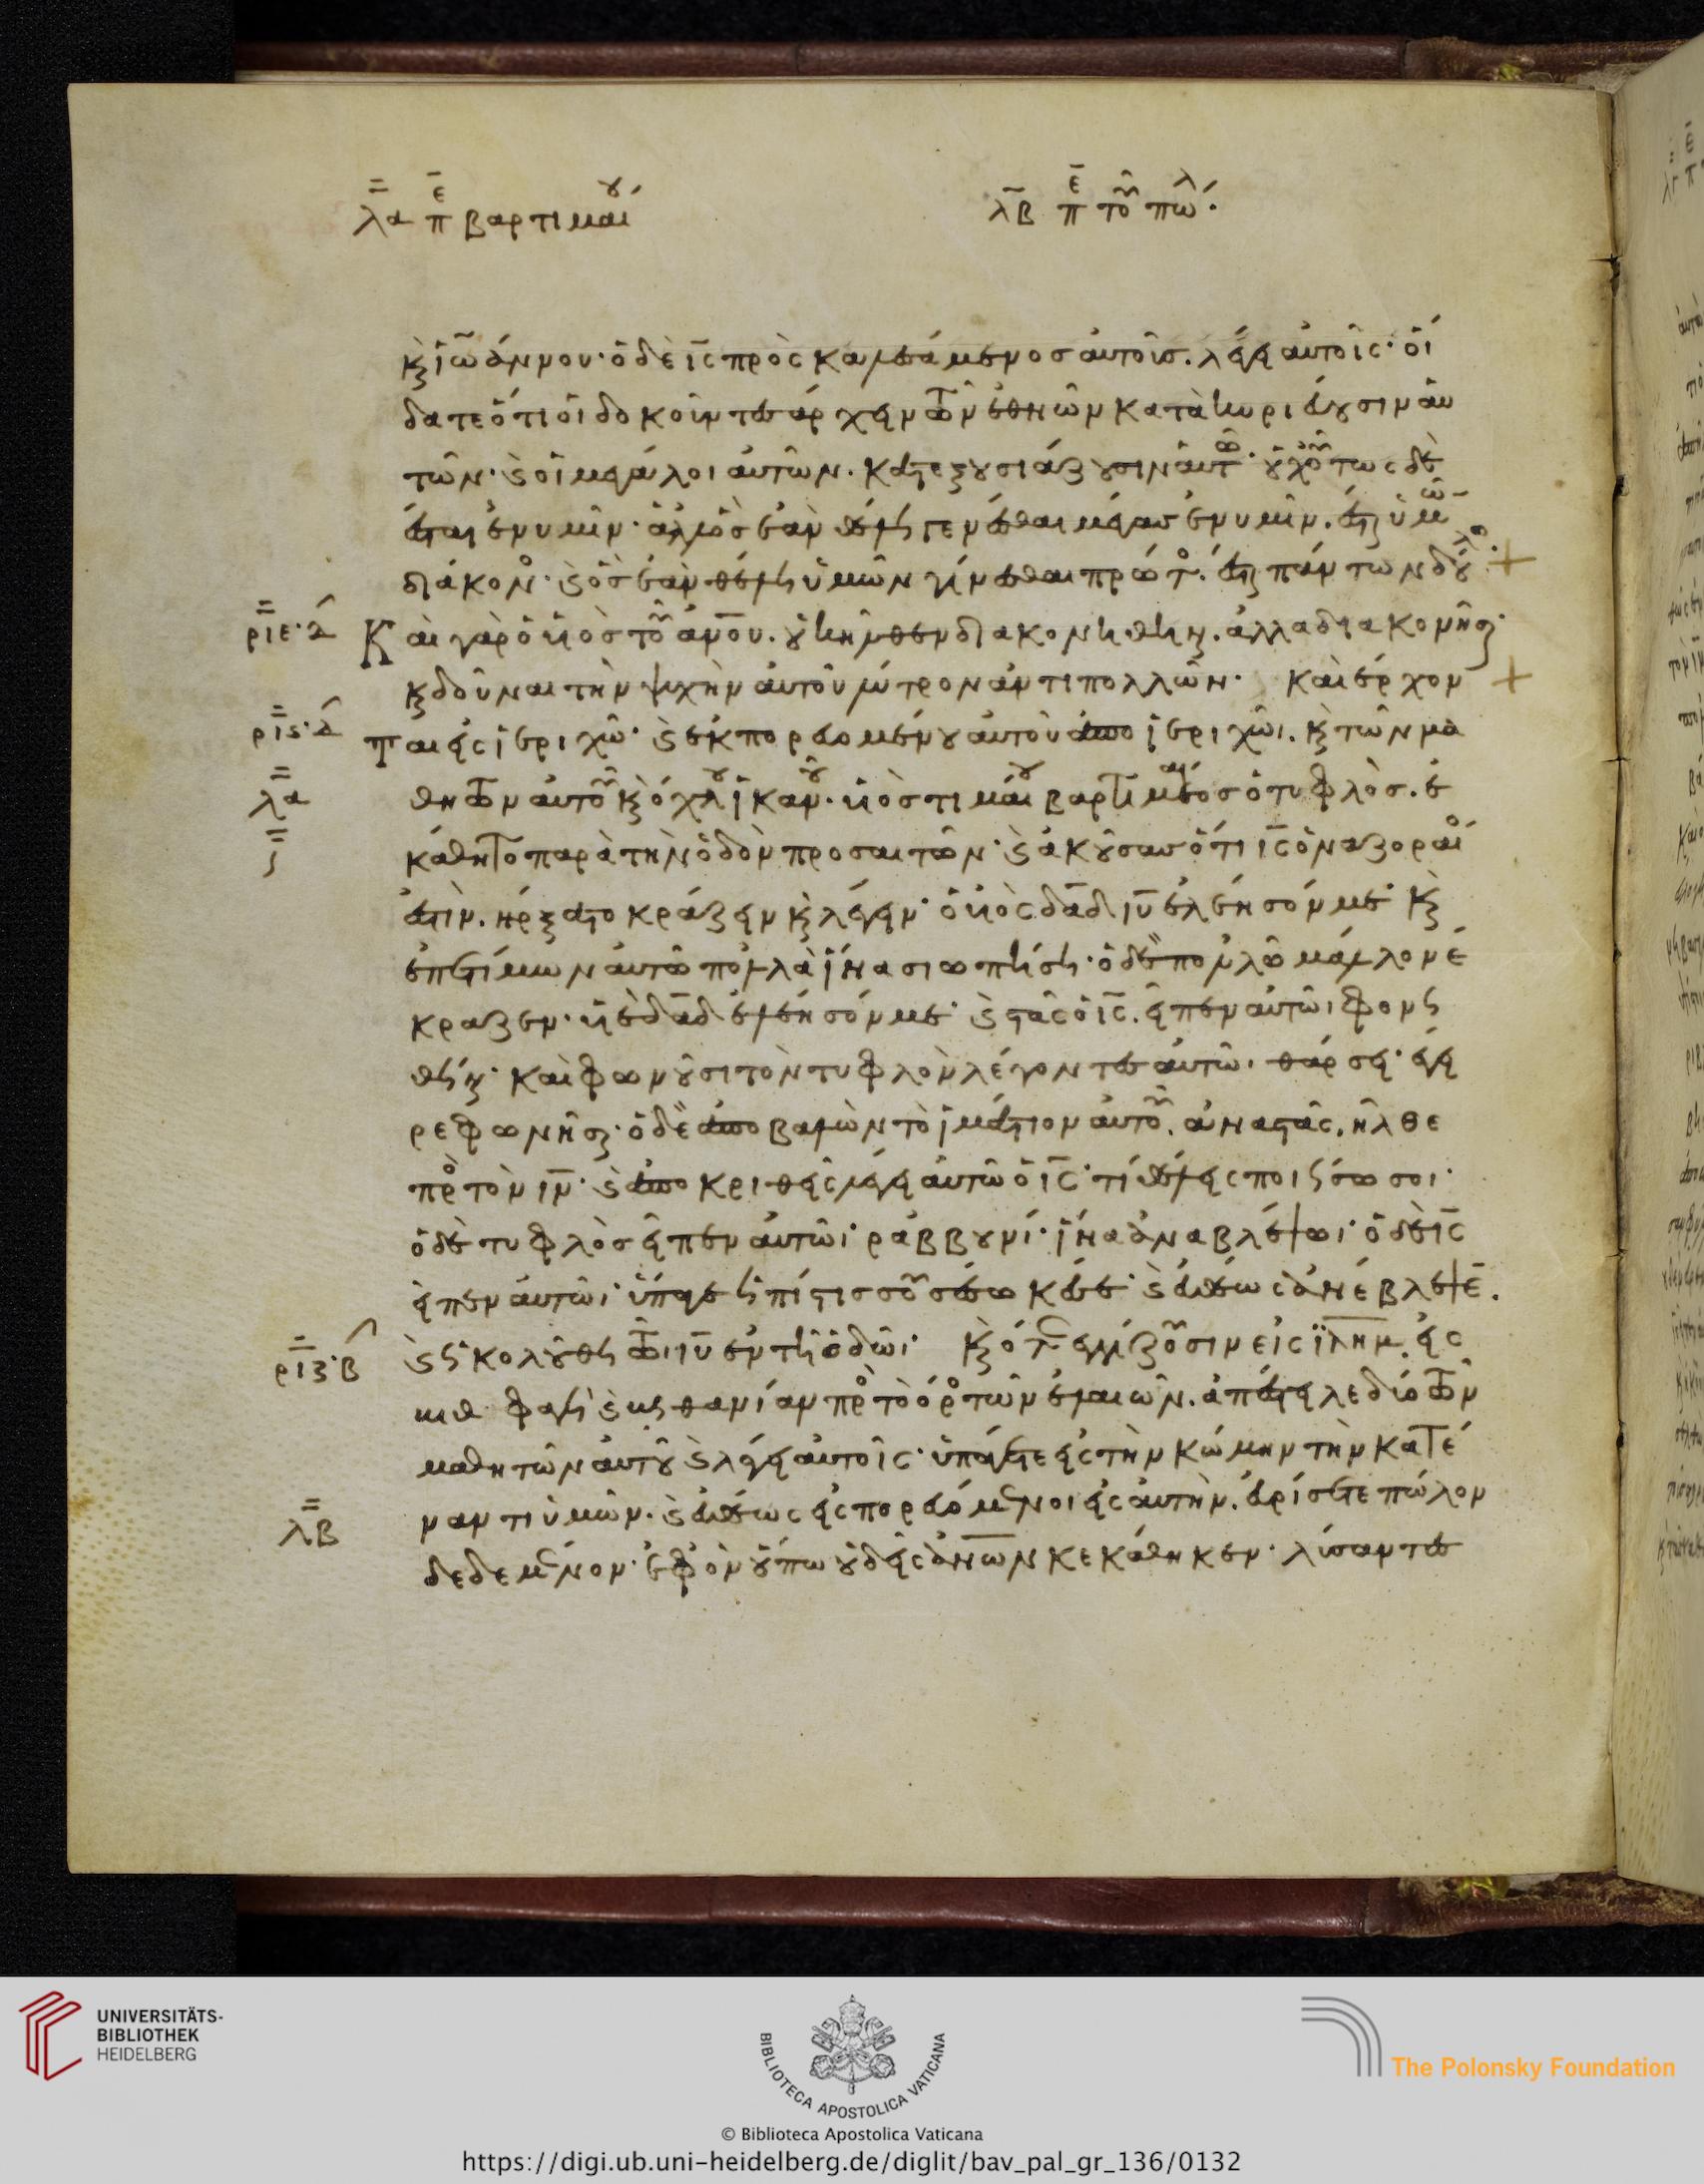 λα πε βαρτιμαίου
λβ πε τοῦ πώλ
κ ἰωάννου· ὁ δὲ ις προσκαλεσάμενοσ αὐτοῖσ. λέγει αὐτοῖς· οἴ
δατε ὅτι οἱ δοκοῦντες ἄρχειν τῶν ἐθνῶν κατακυριεύουσιν αὐ
τῶν· κ οἱ μεγάλοι αὐτῶν. κατεξουσιάζουσιν αὐτῶν· οὐχ οὕτως δὲ
ἔσται ἐν υμῖν· ἀλλ ὃσ ἐὰν θέλη γενέσθαι μέγασ ἐν υμῖν. ἔσται ὑμῶν
διάκονος· κ ὃσ ἐὰν θέλη ὑμῶν γενέσθαι πρῶτος. ἔσται πάντων δοῦλος.
ριε·δ
Και γὰρ ὁ υἱὸσ τοῦ ανου. οὐκ ἦλθεν διακονηθῆναι. ἀλλα διακονῆσαι·
κ δοῦναι τὴν ψυχὴν αὐτοῦ λύτρον ἀντι πολλῶν· Καὶ ἔρχον
ρις·δ
ται εἰς ἱεριχῶ· κ ἐκπορευομένου αὐτοῦ ἀπο ἱεριχῶι. κ τῶν μα
λα
θητῶν αὐτοῦ κ ὄχλου ἱκανοῦ· υἱὸσ τιμαίου βαρτιμαῖοσ ὁ τυφλὸσ. ἐ
κάθητο παρὰ τὴν ὁδὸν προσαιτῶν· κ ἀκούσασ ὅτι ις ὁ ναζοραῖός
ἐστιν. ἤρξατο κράζειν κ λέγειν· ὁ υἱὸς δαδ ιυ ἐλέησόν με· κ
ἐπετίμων αὐτῶ πολλὰ ἵνα σιωπήση· ὁ δὲ πολλῶ μᾶλλον ἔ
κραζεν· υἱὲ δαδ ἐλέησόν με· κ στὰς ὁ ις. εἶπεν αὐτῶι φονη
θῆναι· καὶ φωνοῦσι τὸν τυφλὸν λέγοντες αὐτῶ· θάρσει· ἔγει
ρε φωνῆσαι· ὁ δὲ ἀποβαλὼν τὸ ἱμάτιον αὐτοῦ. ἀναστὰς. ἦλθε
πρὸς τὸν ιν· κ ἀποκριθεὶς λέγει αὐτῶ ὁ ις· τί θέλεις ποιήσω σοι·
ὁ δὲ τυφλὸσ εἶπεν αὐτῶι· ραββουνί· ἵνα ἀναβλέψωι· ὁ δὲ ις
εἶπεν αὐτῶι· ὕπαγε ἡ πίστισ σοῦ σέσωκέ σε· κ εὐθέως ἀνέβλεψε.
ριζ·β
κ ἠκολούθη τῶι ιυ ἐν τῆ ὁδῶι· κ ὅτε ἐγγίζουσιν εἰς ιλημ. εἰς
βηθφαγὴ κ βηθανίαν πρὸς τὸ ὄρος τῶν ἐλαιῶν. ἀποστέλλει δύο τῶν
μαθητῶν αὐτοῦ κ λέγει αὐτοῖς· ὑπάγετε εἰς τὴν κώμην τὴν κατέ
λβ
ναντι ὑμῶν. κ εὐθέως εἰσπορευόμενοι εἰς αὐτὴν. εὑρήσετε πώλον
δεδεμένον· ἐφ ὃν οὔπω οὐδεὶς ανων κεκάθηκεν· λύσαντες
UNIVERSITÄTS-
BIBLIOTHEK
HEIDELBERG
BIBLIOTECA APOSTOLICA VATICANA
The Polonsky Foundation
© Biblioteca Apostolica Vaticana
https://digi.ub.uni-heidelberg.de/diglit/bav_pal_gr_136/0132